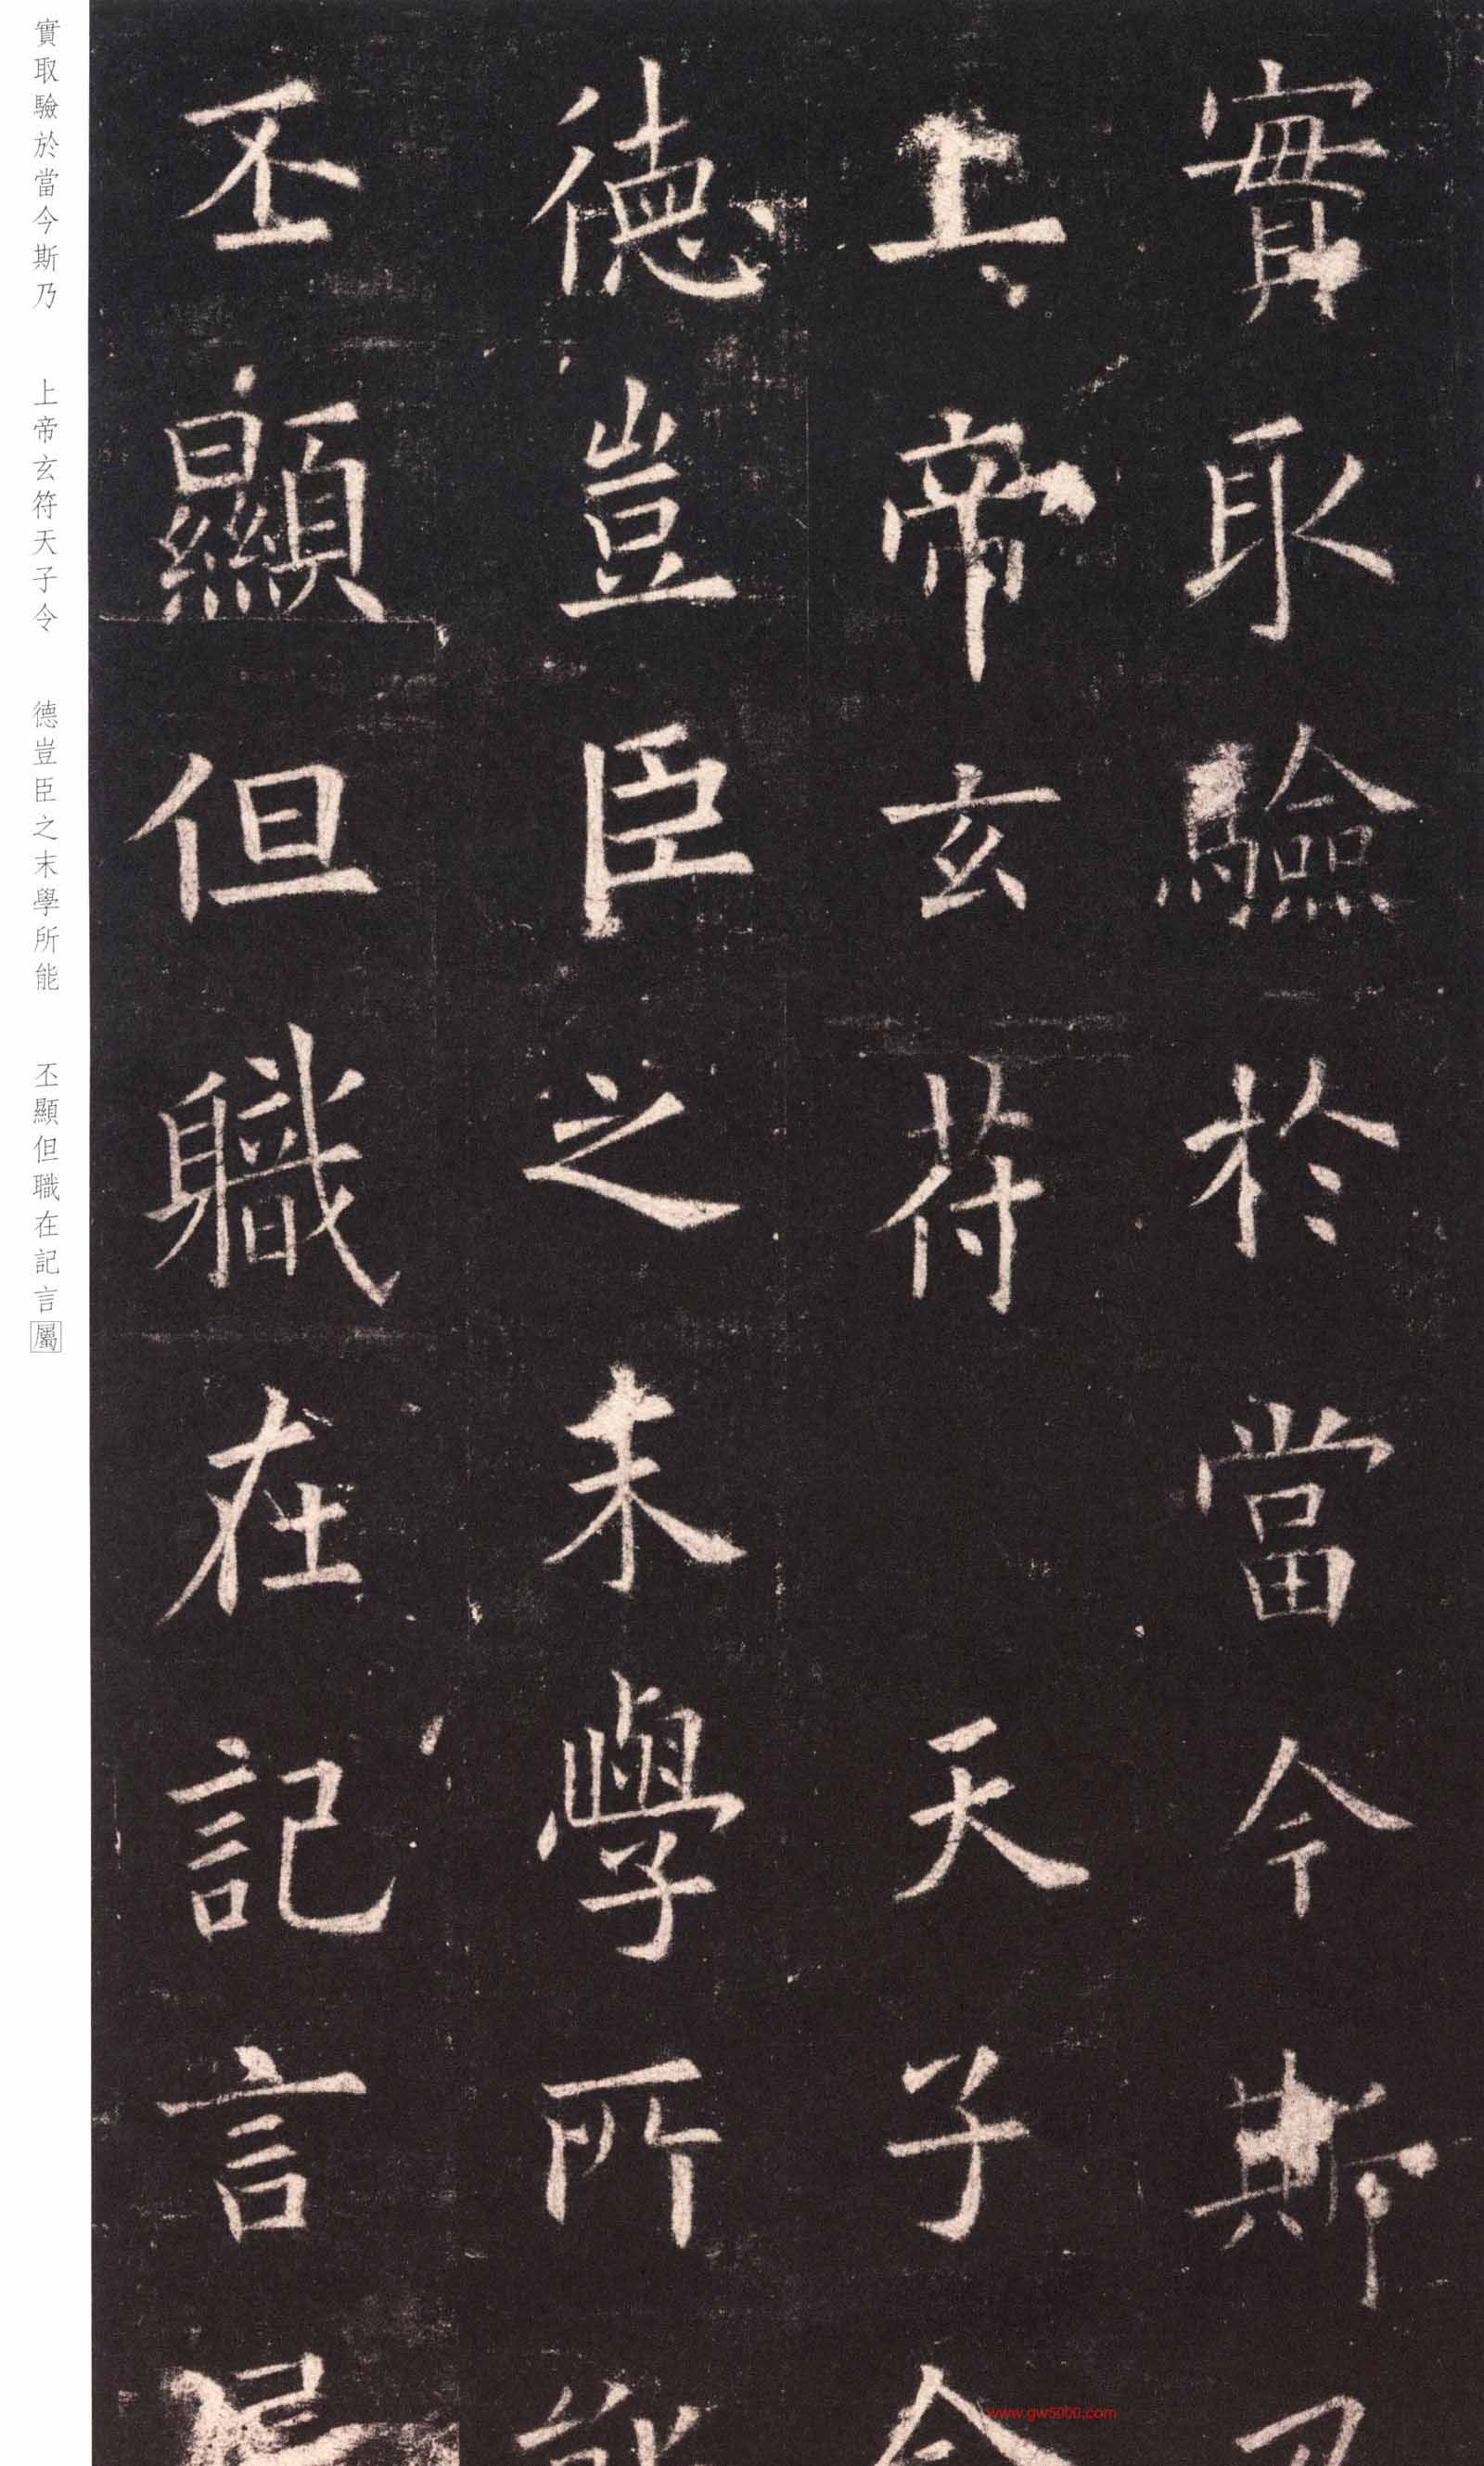 實取驗於當今斯乃
上帝玄符天子令
德豈臣之末學所能
丕顯但職在記言屬
實取驗於當今斯乃
上帝玄符天子令
德豈臣之末學所能
丕顯但職在記言屬
www.gw5000.com